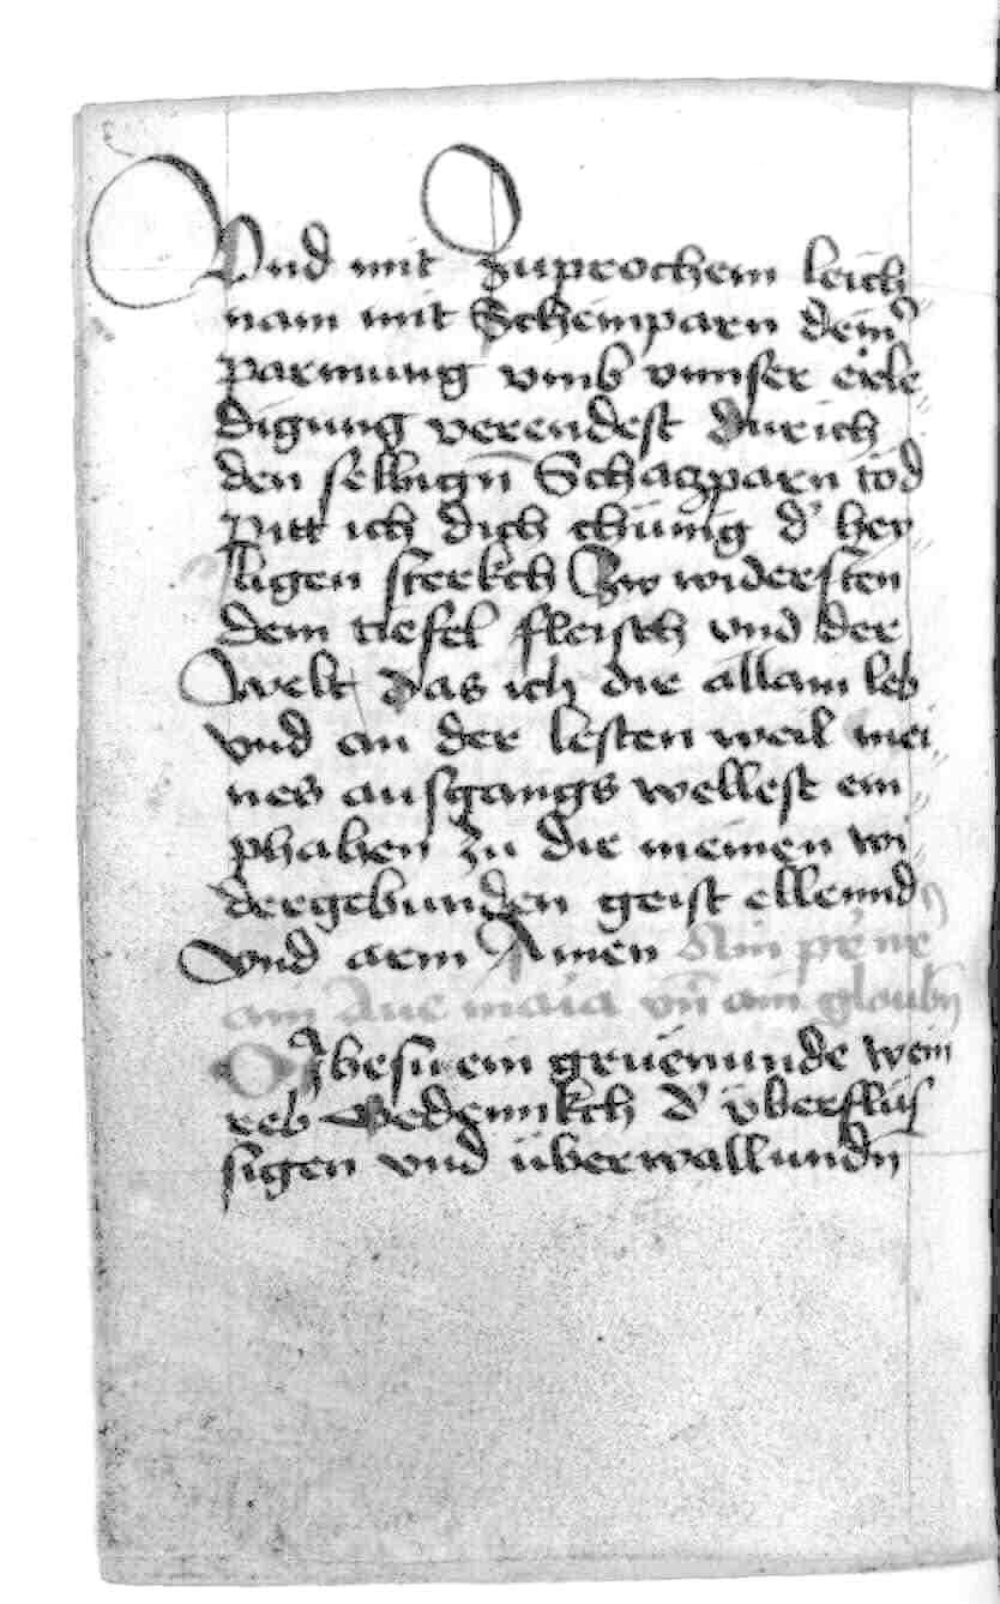 Vnd mit zuprochem leich
nam mit Scheinparn dein͛
parmung vmb vnnser erle
digung verendest durich
den selbign̄ Schaczparn tod
Pitt ich dich chünig d͛ hey
ligen sterkch Zw widersten
dem tiefel fleisch vnd der
welt das ich dir allain leb
vnd an der lesten weil mei
nes ausgangs wellest ein
phahen zu die meinen wi
dergebunden geist ellennd͛
vnd arm Amen Ain pr̄ nr̄
ain Aue maīa vn̄ ain gloubn̄
O Jhesu ein gruenunde wein
reb Gedennkch d͛ v̈berflüs
sigen vnd überwallundn̄